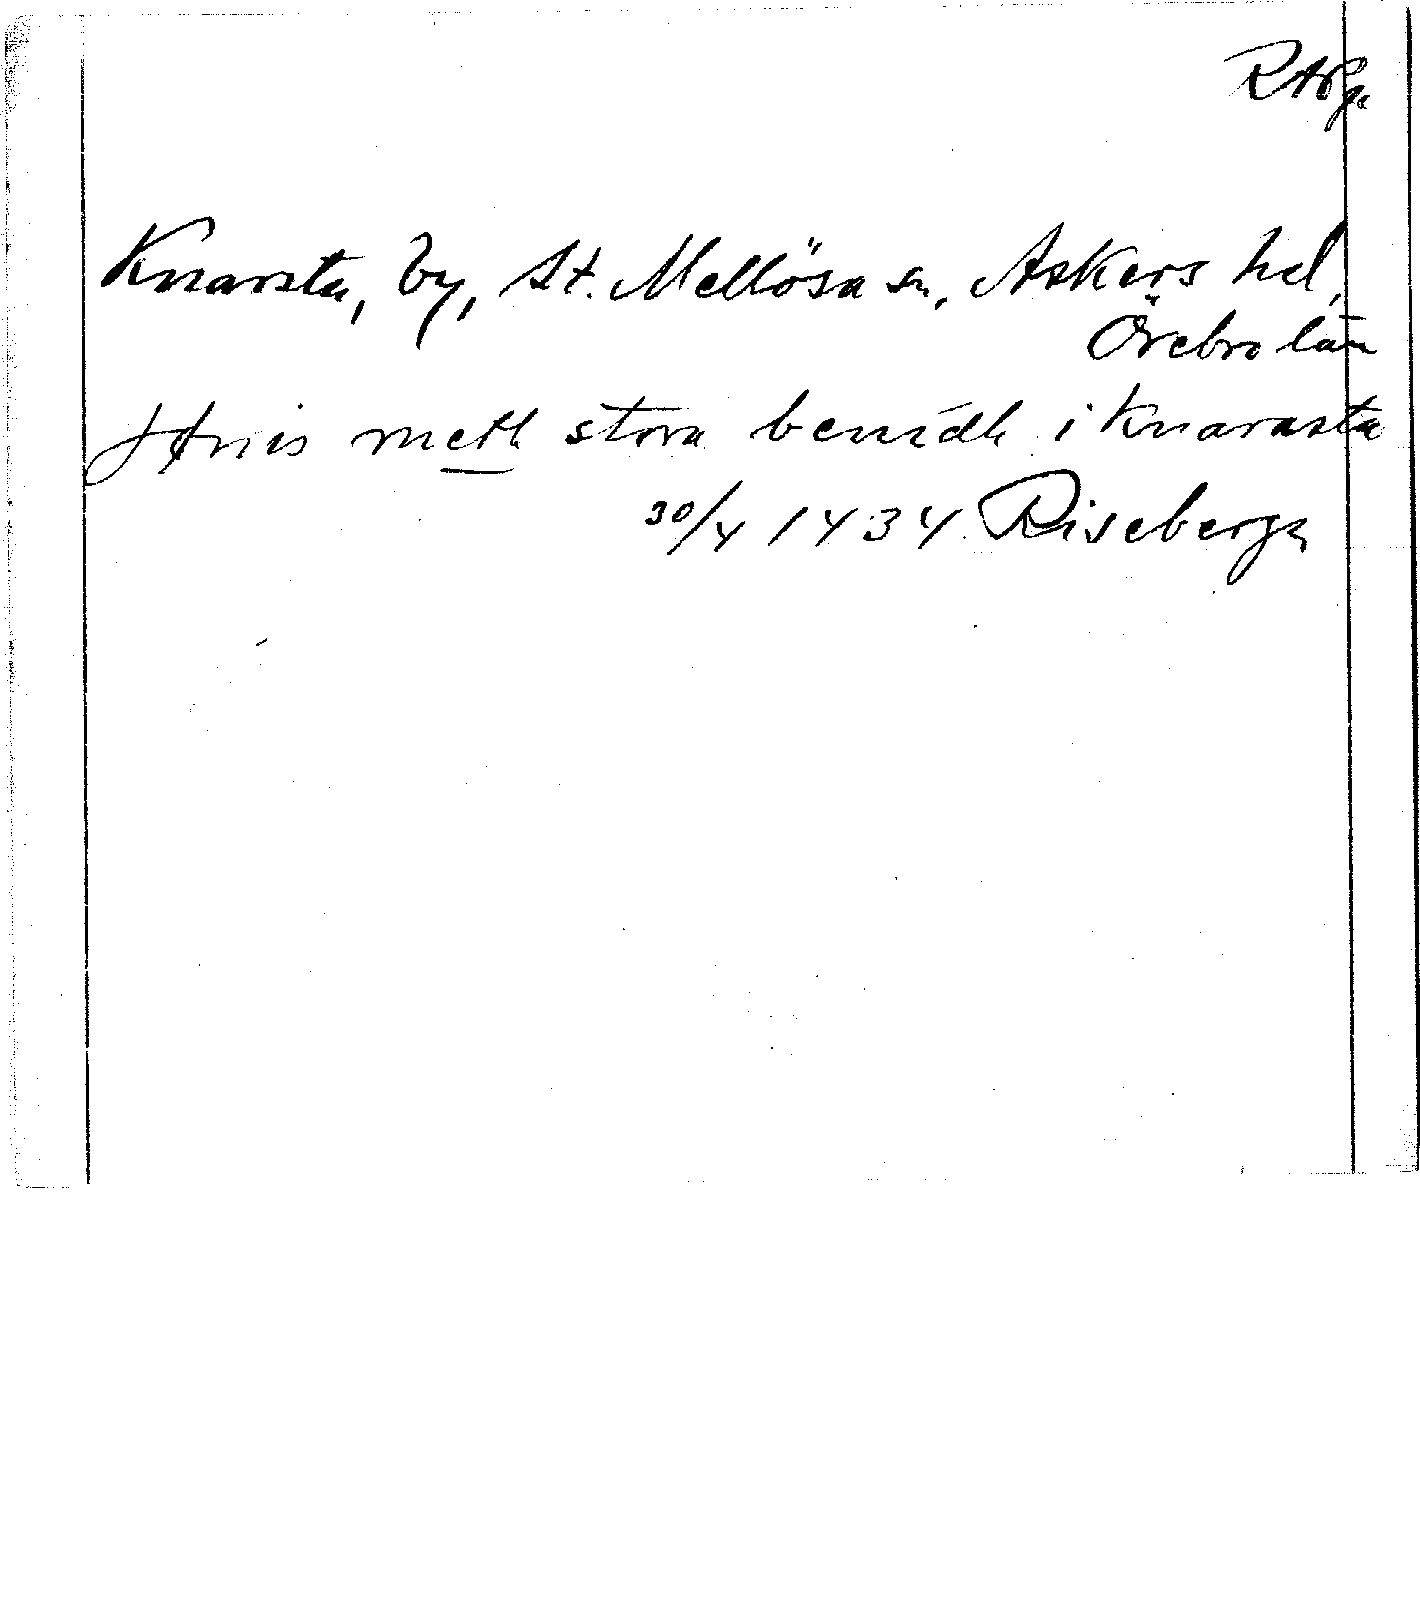 RAp.
Knarsta, by, St. Mellösa sn, Askers hd,
Örebro län
meth stora benidh i Knarasta
30/4 1434 Riseberga